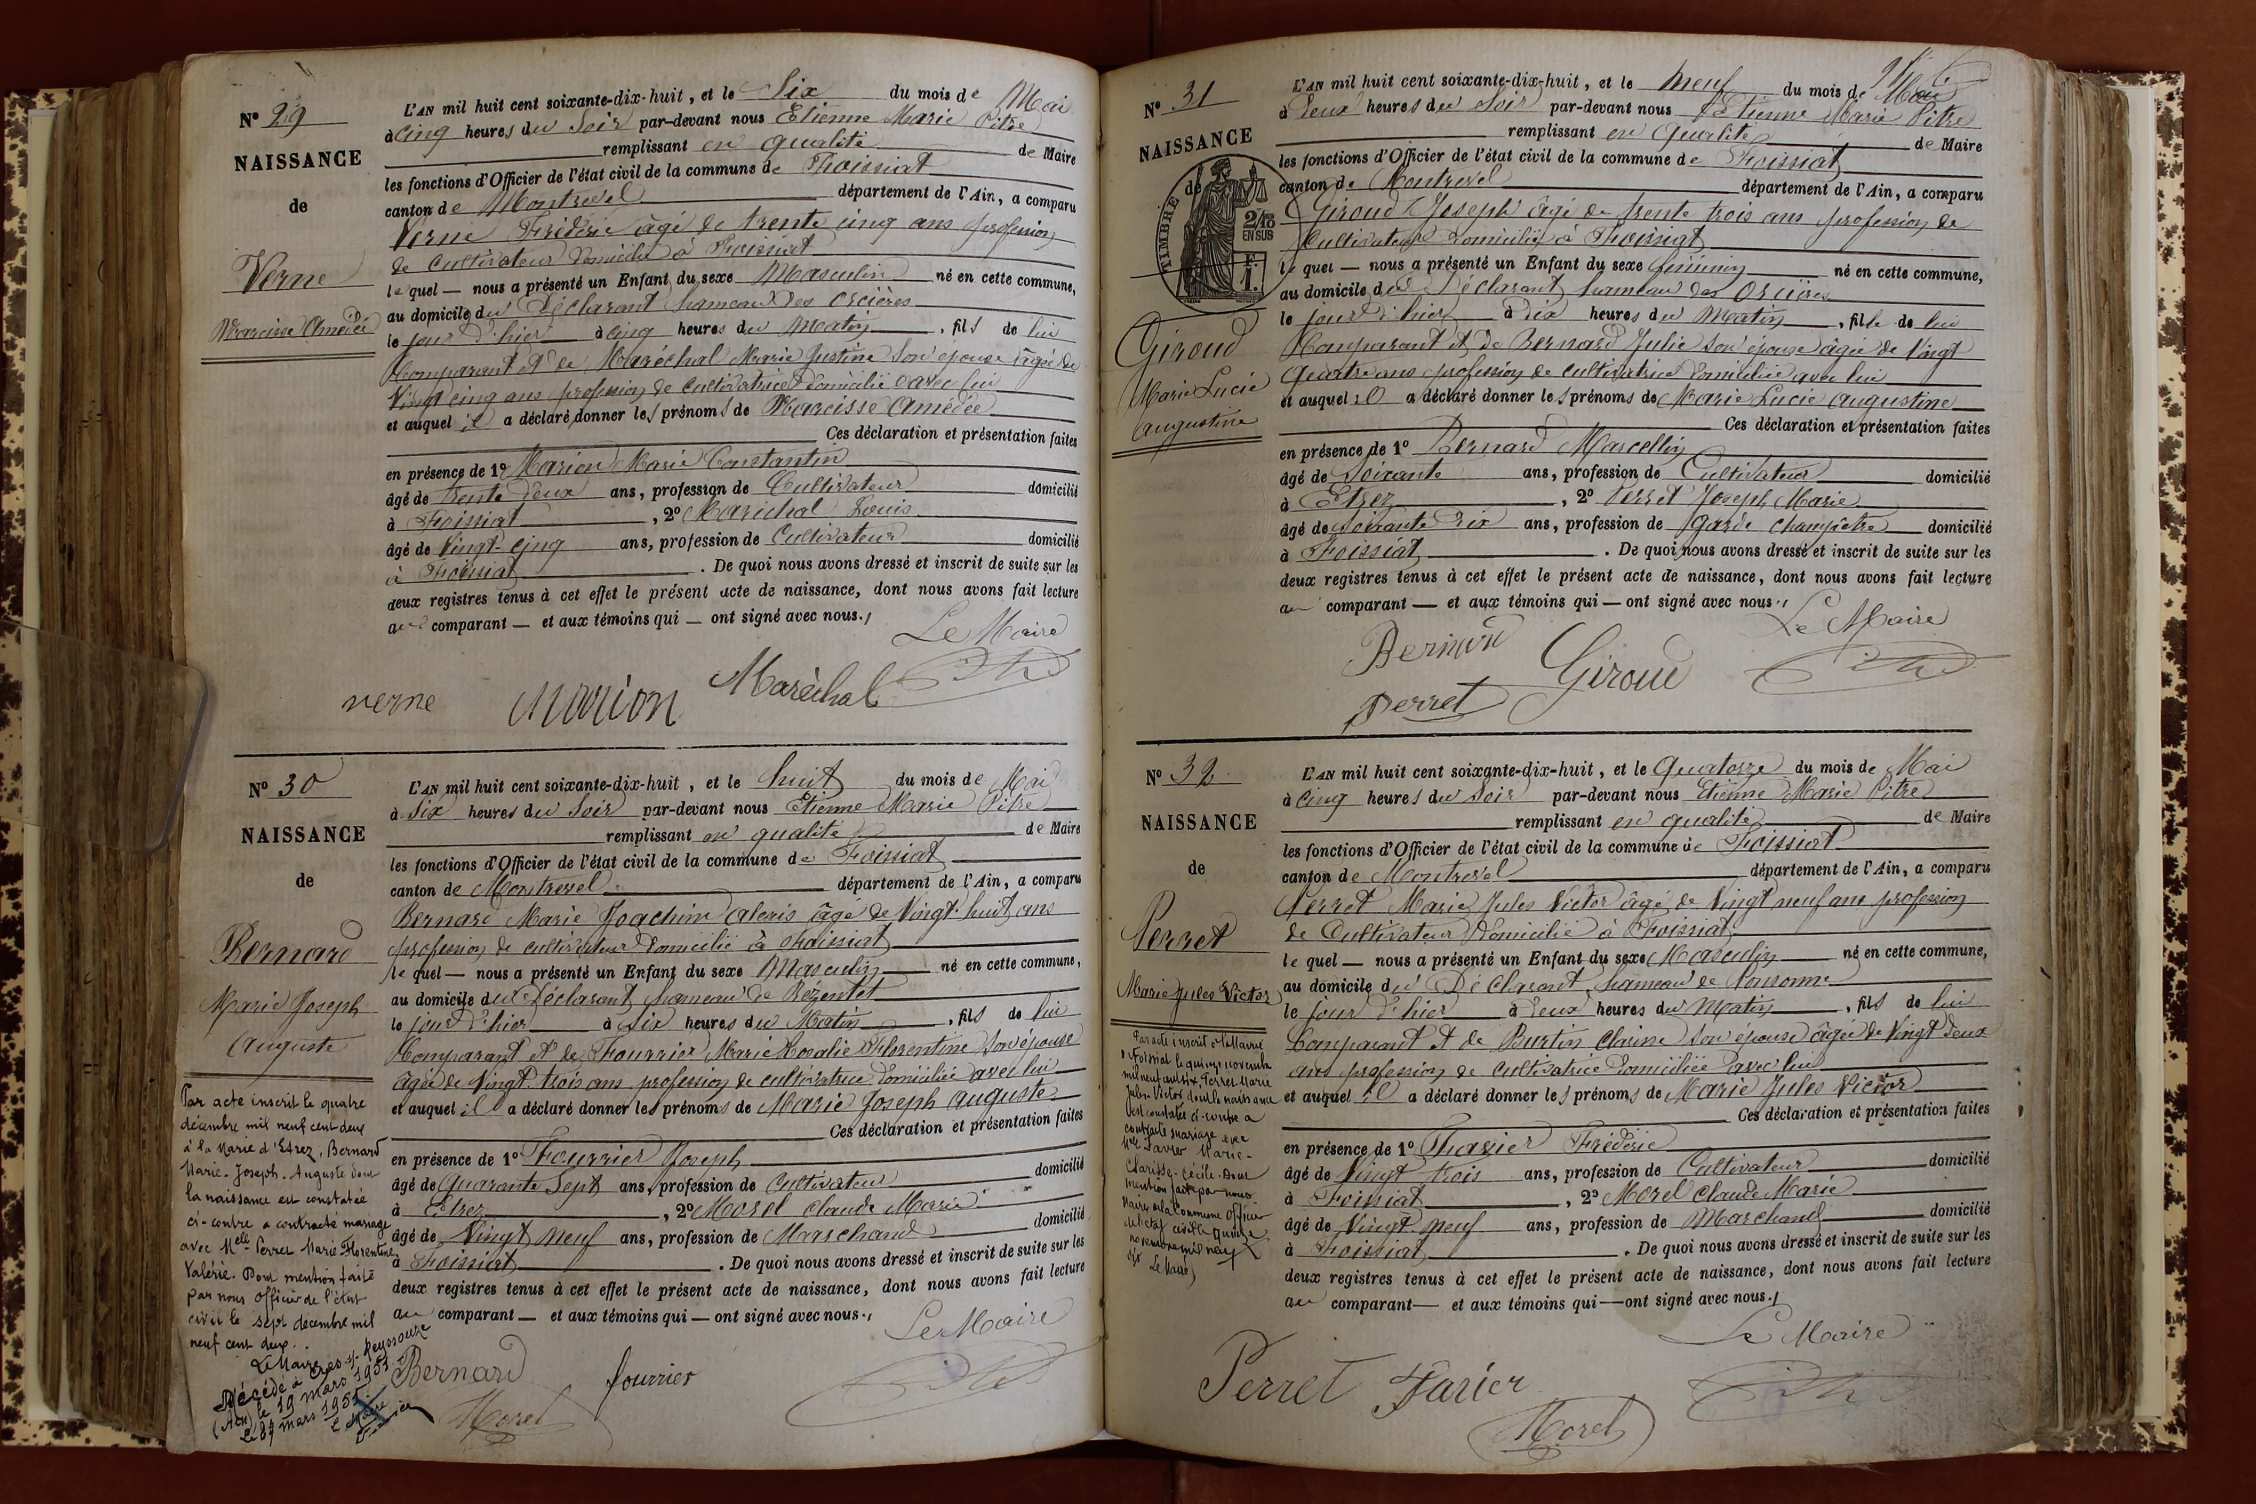 N° 29
NAISSANCE
de
Verne
Narcisse Amédée
L'AN mil huit cent soixante-dix-huit, et le Six du mois de Mai
à cinq heures du Soir par-devant nous Etienne Marie Pitre
remplissant en qualité de Maire
les fonctions d'Officier de l'état civil de la commune de Foissiat
canton de Montrevel département de l'Ain, a comparu
Verne Frédéric âgé de trente cinq ans profession
de Cultivateur domicilié à Foissiat
le quel — nous a présenté un Enfant du sexe Masculin né en cette commune,
au domicile du Déclarant hameau des Orcières
le jour d'hier à cinq heures du Matin, fils de lui
Comparant et de Maréchal Marie Justine son épouse âgée de
Vingt cinq ans profession de cultivatrice domiciliée avec lui
et auquel il a déclaré donner les prénoms de Narcisse Amédée
Ces déclaration et présentation faites
en présence de 1° Marion Marie Constantin
âgé de trente deux ans, profession de Cultivateur domicilié
à Foissiat, 2° Maréchal Louis
âgé de Vingt-cinq ans, profession de Cultivateur domicilié
à Foissiat. De quoi nous avons dressé et inscrit de suite sur les
deux registres tenus à cet effet le présent acte de naissance, dont nous avons fait lecture
au comparant — et aux témoins qui — ont signé avec nous.
Le Maire
verne Marion Maréchal
N° 30
NAISSANCE
de
Bernard
Marie Joseph
Auguste
L'AN mil huit cent soixante-dix-huit, et le huit du mois de Mai
à Six heures du Soir par-devant nous Etienne Marie Pitre
remplissant en qualité de Maire
les fonctions d'Officier de l'état civil de la commune de Foissiat
canton de Montrevel département de l'Ain, a comparu
Bernard Marie Joachim Alexis âgé de Vingt-huit ans
profession de cultivateur domicilié à Foissiat
le quel — nous a présenté un Enfant du sexe Masculin né en cette commune,
au domicile du Déclarant hameau de Rézentet
le jour d'hier à Six heures du Matin, fils de lui
Comparant et de Fourrier Marie Rosalie Florentine son épouse
âgée de Vingt trois ans profession de cultivatrice domiciliée avec lui
et auquel il a déclaré donner les prénoms de Marie Joseph Auguste
Ces déclaration et présentation faites
en présence de 1° Fourrier Joseph
âgé de Quarante Sept ans, profession de Cultivateur domicilié
à Etrez, 2° Morel Claude Marie
âgé de Vingt neuf ans, profession de Marchand domicilié
à Foissiat. De quoi nous avons dressé et inscrit de suite sur les
deux registres tenus à cet effet le présent acte de naissance, dont nous avons fait lecture
au comparant — et aux témoins qui — ont signé avec nous.
Le Maire
Bernard fourrier
Morel
Par acte inscrit le quatre
décembre mil neuf cent deux
à la Mairie d'Etrez, Bernard
Marie-Joseph-Auguste dont
la naissance est constatée
ci-contre a contracté mariage
avec Melle Perret Marie-Florentine
Valérie. Dont mention faite
par nous Officier de l'état
civil le sept décembre mil
neuf cent deux.
Le Maire
Décédé à Cras s/ Reyssouze
(Ain) le 19 mars 1951
mars 1951
Le Maire
N° 31
NAISSANCE
de
TIMBRE
2/10
EN SUS
F.
1.
Giroud
Marie Lucie
Augustine
L'AN mil huit cent soixante-dix-huit, et le neuf du mois de Mai
à Deux heures du Soir par-devant nous Etienne Marie Pitre
remplissant en qualité de Maire
les fonctions d'Officier de l'état civil de la commune de Foissiat
canton de Montrevel département de l'Ain, a comparu
Giroud Joseph âgé de trente trois ans profession de
Cultivateur domicilié à Foissiat
le quel — nous a présenté un Enfant du sexe féminin né en cette commune,
au domicile du Déclarant hameau des Orcières
le jour d'hier à Dix heures du Matin, fille de lui
Comparant et de Bernard Julie son épouse âgée de Vingt
Quatre ans profession de cultivatrice domiciliée avec lui
et auquel il a déclaré donner les prénoms de Marie Lucie Augustine
Ces déclaration et présentation faites
en présence de 1° Bernard Marcellin
âgé de Soixante ans, profession de Cultivateur domicilié
à Etrez, 2° Perret Joseph Marie
âgé de Soixante Dix ans, profession de garde champêtre domicilié
à Foissiat. De quoi nous avons dressé et inscrit de suite sur les
deux registres tenus à cet effet le présent acte de naissance, dont nous avons fait lecture
au comparant — et aux témoins qui — ont signé avec nous.
Le Maire
Bernard Giroud
Perret
N° 32
NAISSANCE
de
Perret
Marie Jules Victor
L'AN mil huit cent soixante-dix-huit, et le Quatorze du mois de Mai
à cinq heures du Soir par-devant nous Etienne Marie Pitre
remplissant en qualité de Maire
les fonctions d'Officier de l'état civil de la commune de Foissiat
canton de Montrevel département de l'Ain, a comparu
Perret Marie Jules Victor âgé de Vingt neuf ans profession
de Cultivateur domicilié à Foissiat
le quel — nous a présenté un Enfant du sexe Masculin né en cette commune,
au domicile du Déclarant, hameau de
le jour d'hier à Deux heures du Matin, fils de lui
Comparant et de Burtin Clarisse son épouse âgée de Vingt Deux
ans profession de cultivatrice domiciliée avec lui
et auquel il a déclaré donner les prénoms de Marie Jules Victor
Ces déclaration et présentation faites
en présence de 1° Favier Frédéric
âgé de Vingt trois ans, profession de Cultivateur domicilié
à Foissiat, 2° Morel Claude Marie
âgé de Vingt neuf ans, profession de Marchand domicilié
à Foissiat. De quoi nous avons dressé et inscrit de suite sur les
deux registres tenus à cet effet le présent acte de naissance, dont nous avons fait lecture
au comparant — et aux témoins qui — ont signé avec nous.
Le Maire
Perret Favier
Morel
Par acte inscrit à la Mairie
Foissiat le quinze novembre
mil neuf cent six, Perret Marie
Jules Victor dont la naissance
est constatée ci-contre a
contracté mariage avec
Melle Favier Marie-
Clarisse-Cécile. Dont
mention faite par nous
Maire de la Commune Officier
de l'état civil le quinze
novembre mil neuf
six Le Maire